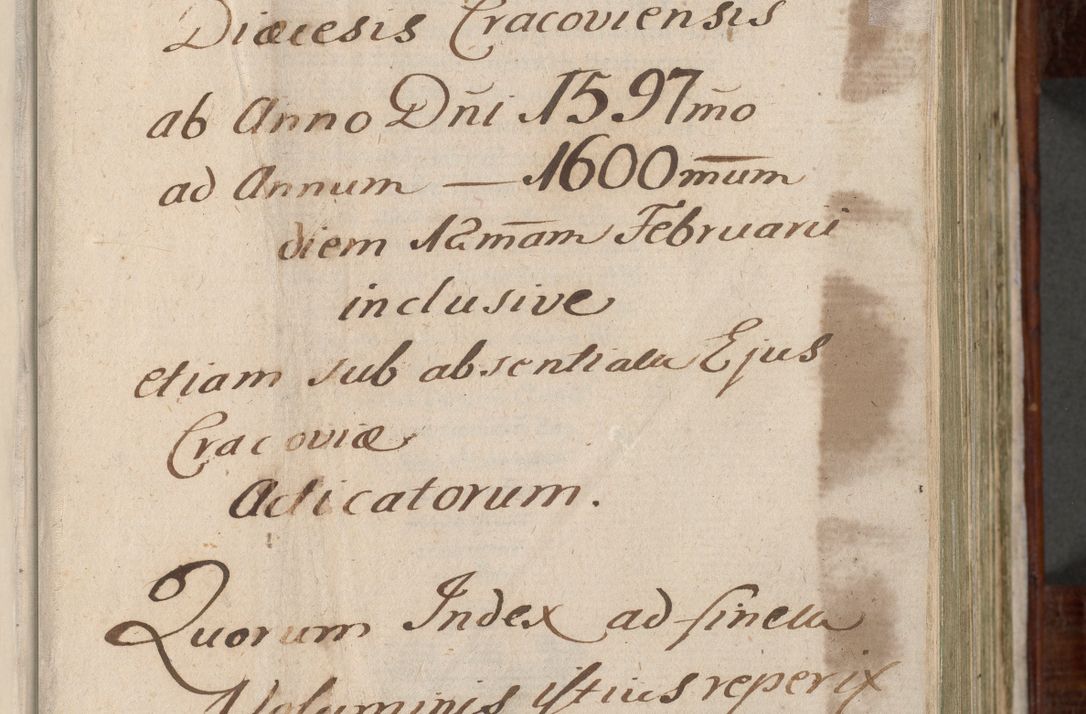 Diæcesis Cracoviensis
ab Anno Dñi 1597m̃o
ad Annum — 1600m̄um
diem 12m̄am Februarii
inclusive
etiam sub absentiam Ejus
Cracoviæ
Acticatorum.
Quorum Index ad finem
Voluminis istius reperi